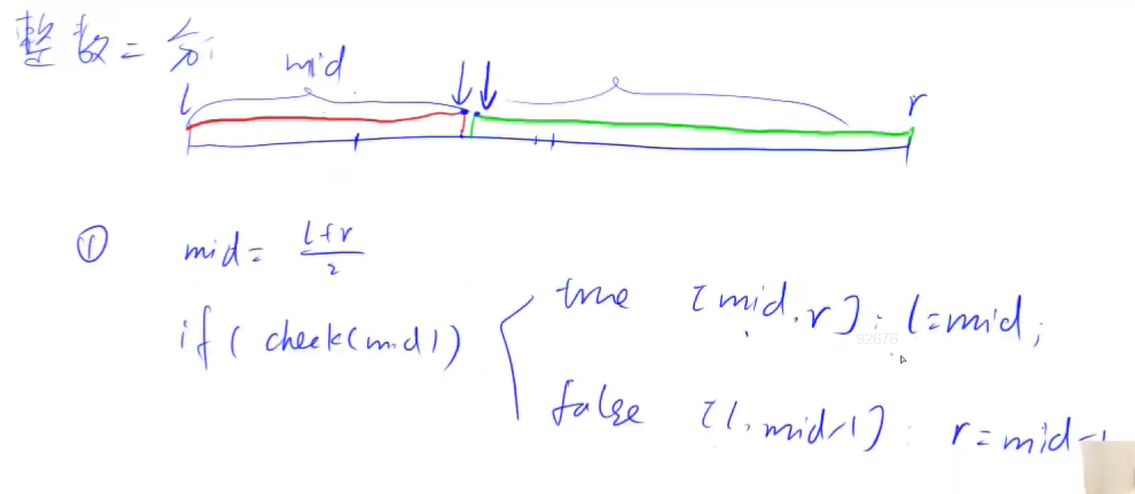 整数二分
mid
l
r
① mid = l+r / 2
if ( check(mid) )
true [mid, r] : l=mid;
92676
false [l, mid-1] : r=mid-1